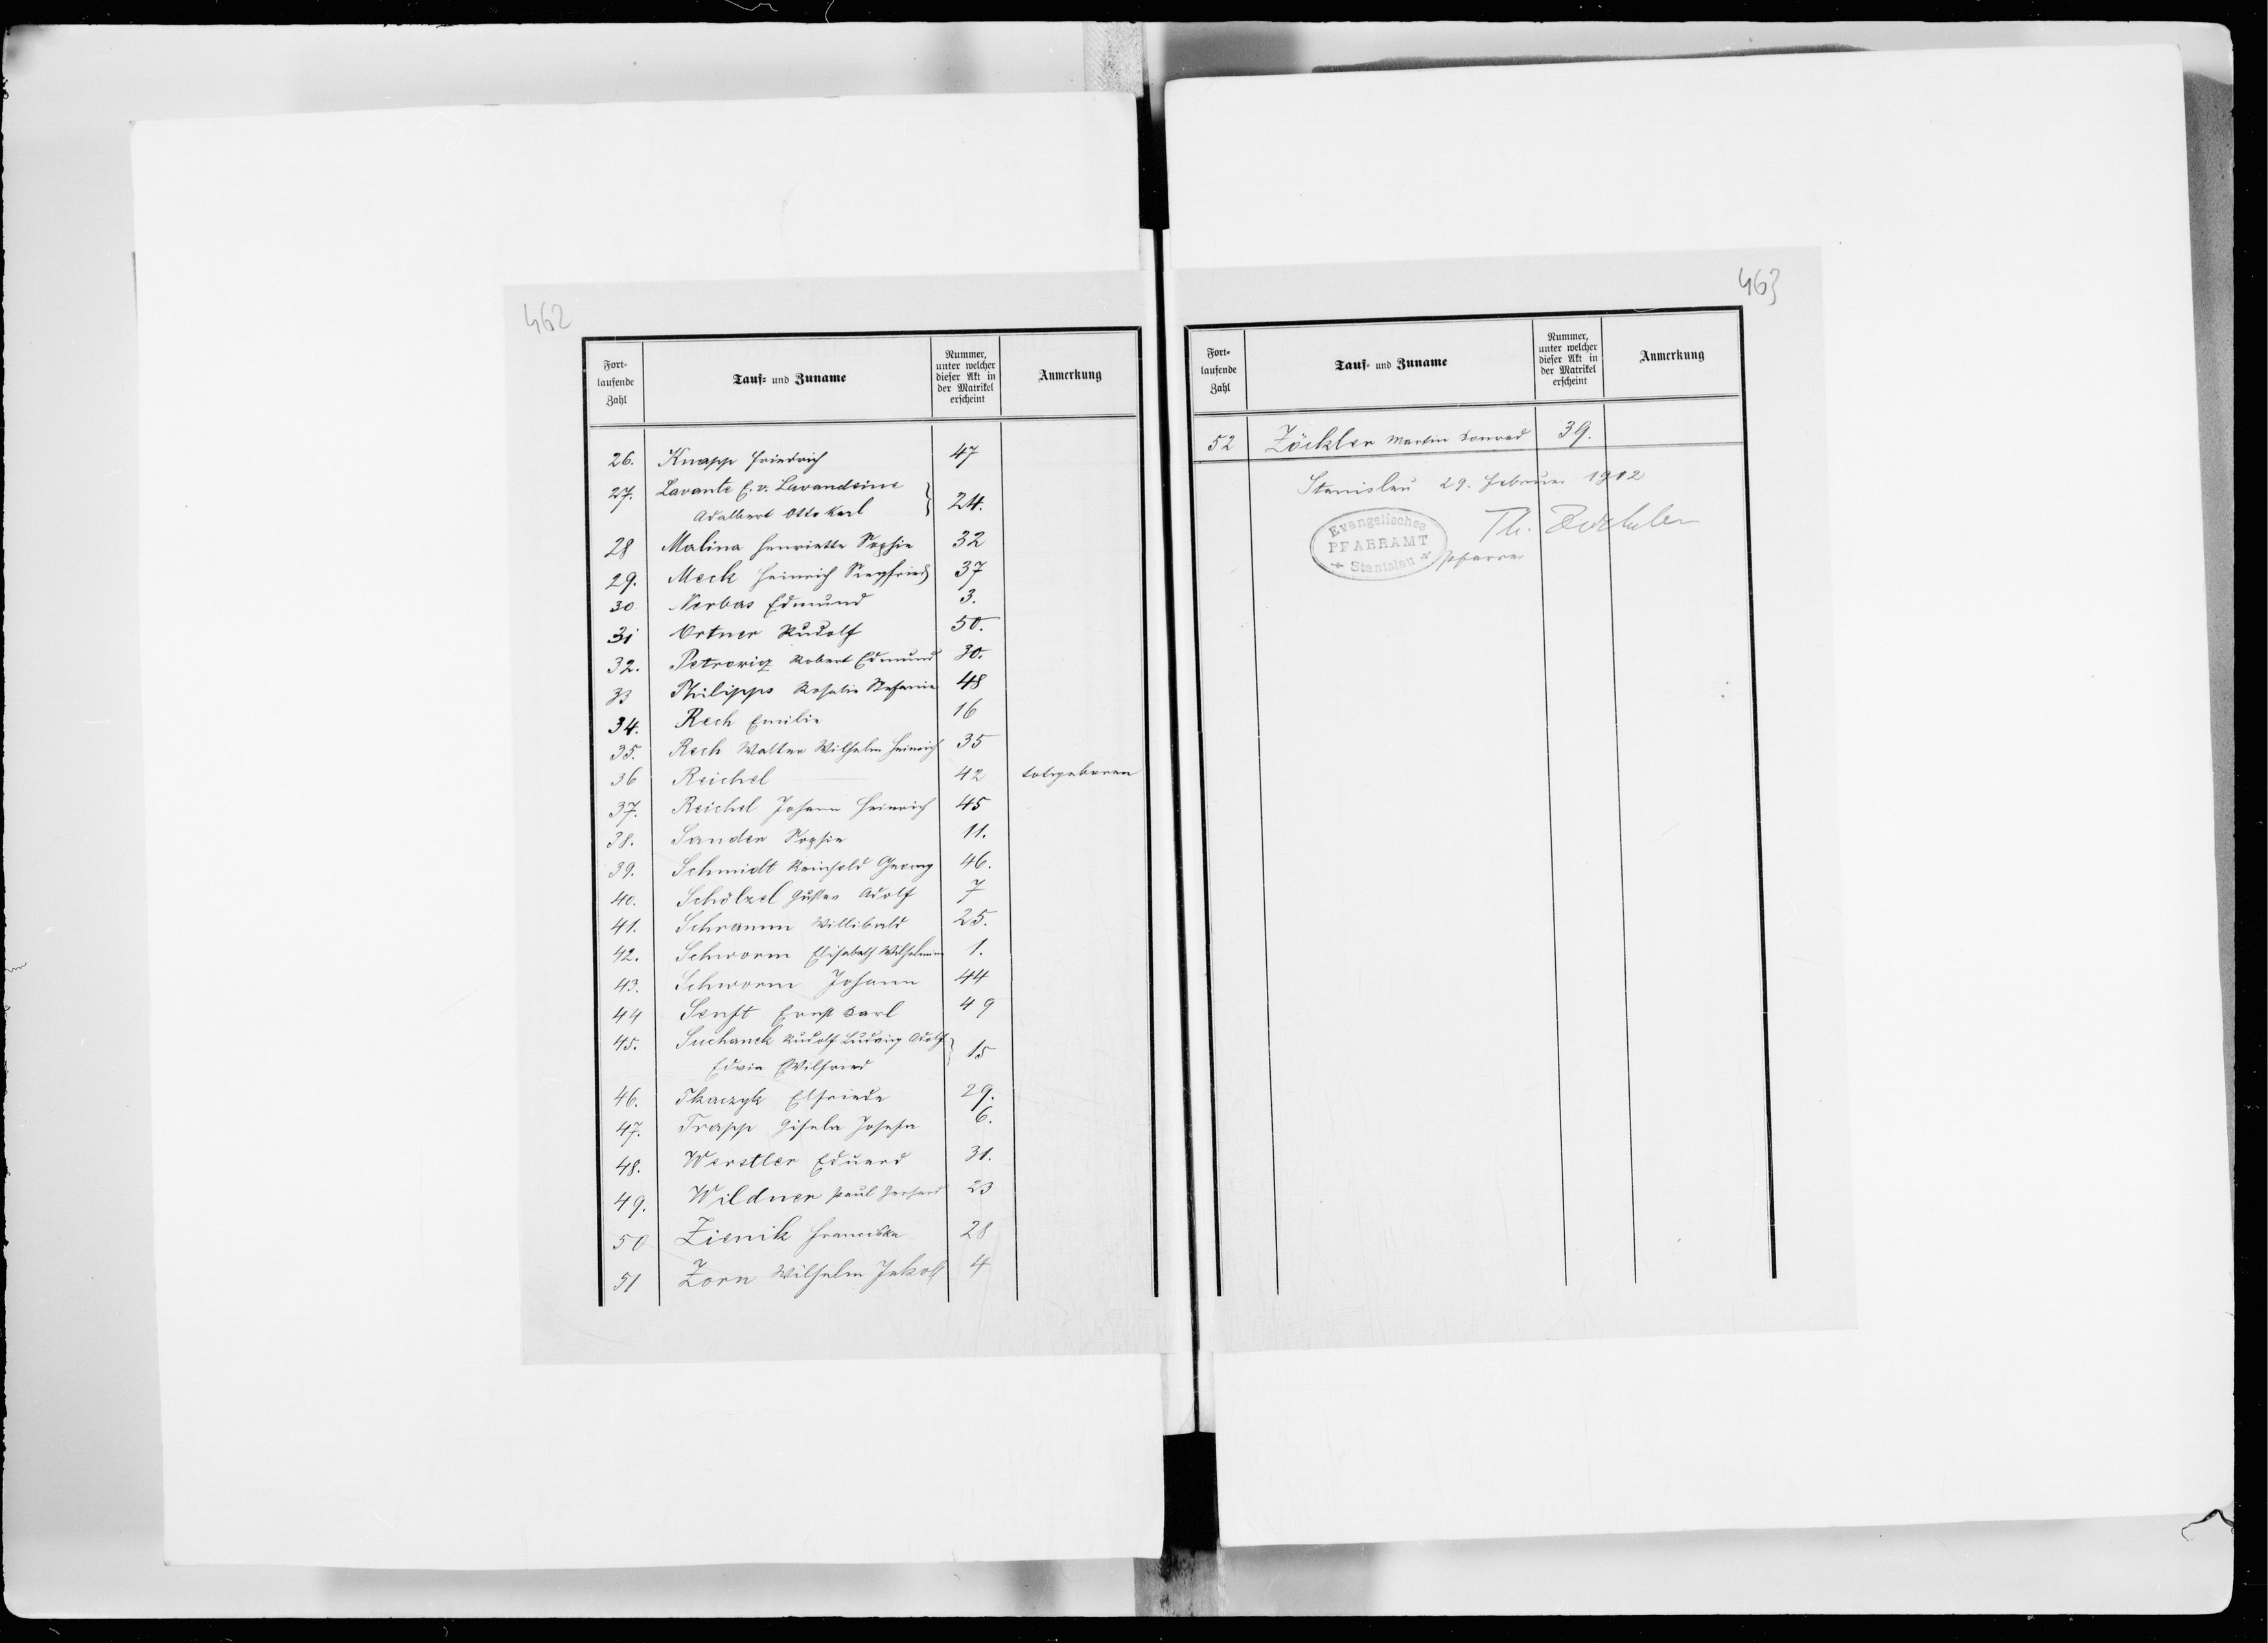 462
Fort-
laufende
Zahl
Tauf- und Zuname
Nummer,
unter welcher
dieser Akt in
der Matrikel
erscheint
Anmerkung
26. Knapp Friedrich 47
27. Lavante E. v. Lavandeine
Adalbert Otto Karl 24.
28 Malina Henriette Sophie 32
29. Meck Heinrich Siegfried 37
30 Nerbas Edmund 3.
31 Ortner Rudolf 50.
32. Petrowig Robert Edmund 30.
33 Philipps Rosalie Stefanie 48
34. Rech Emilie 16
35. Rech Walter Wilhelm Heinrich 35
36 Reichel 42 totgeboren
37. Reichel Johann Heinrich 45
38. Sander Sophie 11.
39. Schmidt Reinhold Georg 46.
40. Schölzel Gustav Adolf 7
41. Schramm Willibald 25.
42. Schworm Elisabeth Wilhelmine 1.
43. Schworm Johann 44
44 Senft Ernst Karl 49
45. Suchanek Rudolf Ludwig Adolf
Edwin Wilfried 15
46. Tkaczyk Elfriede 29.
47. Trapp Gisela Josefa 6.
48. Werstler Eduard 31.
49. Wildner Paul Gerhard 23
50 Zienik Franciska 28
51 Zorn Wilhelm Jakob 4
463
Fort-
laufende
Zahl
Tauf- und Zuname
Nummer,
unter welcher
dieser Akt in
der Matrikel
erscheint
Anmerkung
52 Zöckler Martin Konrad 39.
Stanislau 29. Februar 1912
Th. Zöckler
Pfarrer
Evangelisches
PFARRAMT
Stanislau